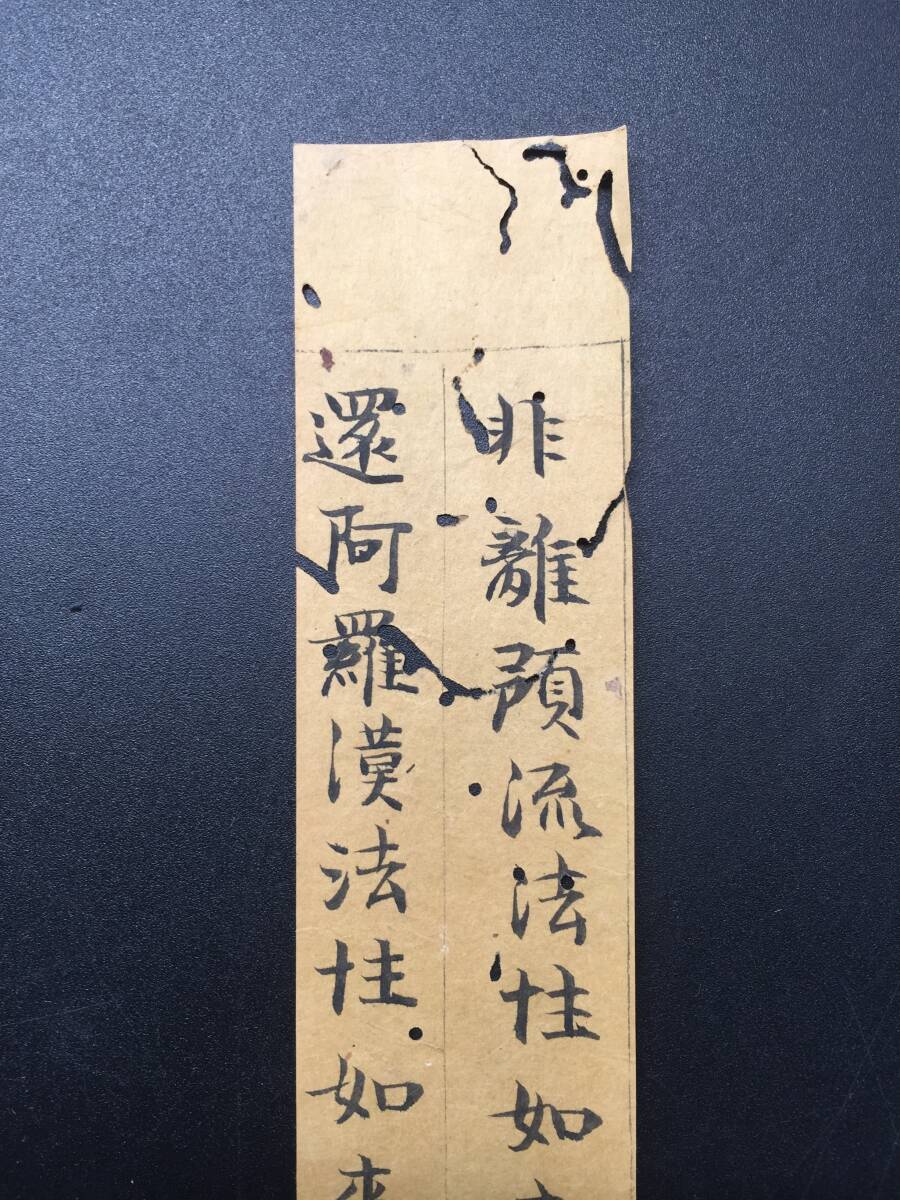 非離預流法性如
還阿羅漢法性如来